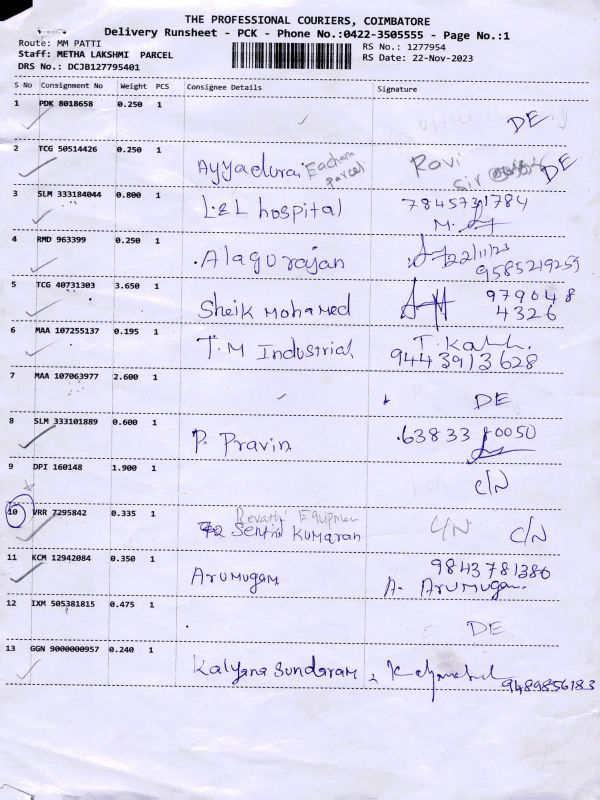 THE PROFESSIONAL COURIERS, COIMBATORE
Delivery Runsheet - PCK - Phone No.:0422-3505555 - Page No.:1
Route: MM PATTI
RS No.: 1277954
Staff: METHA LAKSHMI PARCEL
RS Date: 22-Nov-2023
DRS No.: DCJB127795401
S No Consignment No Weight PCS Consignee Details Signature
1 PDK 8018658 0.250 1 DE
2 TCG 50514426 0.250 1 Ayyadurai Eachana Parcel Ravi Sir DE
3 SLM 333184044 0.800 1 L&L hospital 7845731784
M.
4 RMD 963399 0.250 1 Alagurajan 22/11/23
9585219259
5 TCG 40731303 3.650 1 Sheik Mohamed 979048
4326
6 MAA 107255137 0.195 1 T.M Industrial T. Kall.
9443913628
7 MAA 107063977 2.600 1 DE
8 SLM 333101889 0.600 1 P. Pravin 63833 80050
9 DPI 160148 1.900 1 C/N
10 VRR 7295842 0.335 1 Revathi Equipmen
Senthil Kumaran C/N C/N
11 KCM 12942084 0.350 1 Arumugam 9843781386
A. Arumugam
12 IXM 505381815 0.475 1 DE
13 GGN 9000000957 0.240 1 Kalyana Sundaram
9489856183